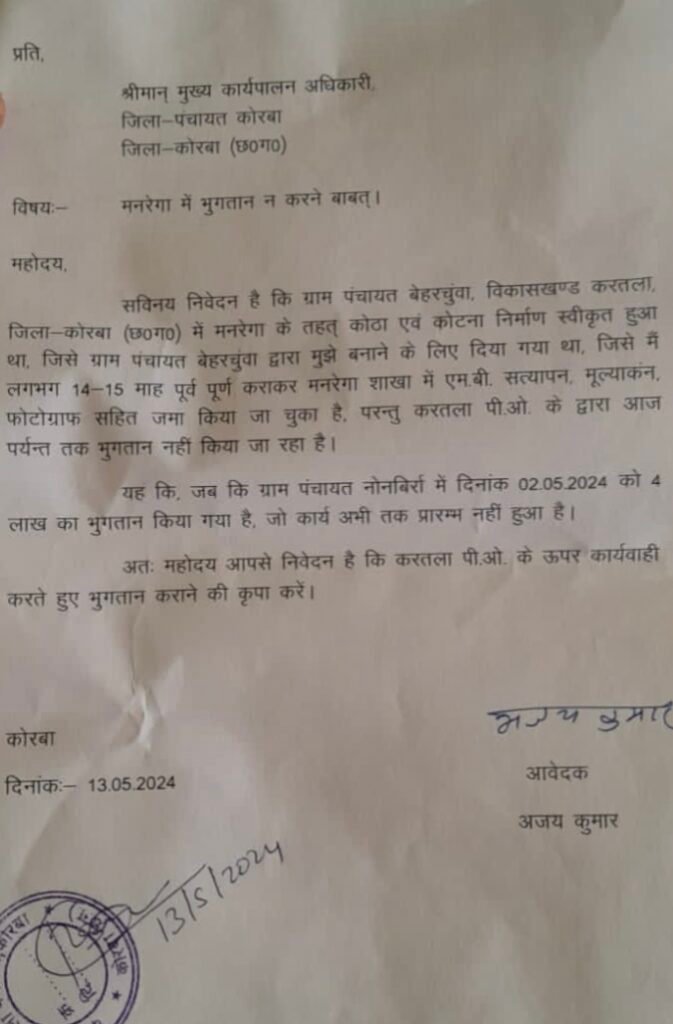 प्रति,
श्रीमान् मुख्य कार्यपालन अधिकारी,
जिला–पंचायत कोरबा
जिला–कोरबा (छ0ग0)
विषयः– मनरेगा में भुगतान न करने बाबत्।
महोदय,
सविनय निवेदन है कि ग्राम पंचायत बेहरचुंवा, विकासखण्ड करतला,
जिला–कोरबा (छ0ग0) में मनरेगा के तहत् कोठा एवं कोटना निर्माण स्वीकृत हुआ
था, जिसे ग्राम पंचायत बेहरचुंवा द्वारा मुझे बनाने के लिए दिया गया था, जिसे मैं
लगभग 14–15 माह पूर्व पूर्ण कराकर मनरेगा शाखा में एम.बी. सत्यापन, मूल्याकंन,
फोटोग्राफ सहित जमा किया जा चुका है, परन्तु करतला पी.ओ. के द्वारा आज
पर्यन्त तक भुगतान नहीं किया जा रहा है।
यह कि, जब कि ग्राम पंचायत नोनबिर्रा में दिनांक 02.05.2024 को 4
लाख का भुगतान किया गया है, जो कार्य अभी तक प्रारम्भ नहीं हुआ है।
अतः महोदय आपसे निवेदन है कि करतला पी.ओ. के ऊपर कार्यवाही
करते हुए भुगतान कराने की कृपा करें।
अजय कुमार
कोरबा
आवेदक
दिनांकः– 13.05.2024
अजय कुमार
13/5/2024
कोरबा